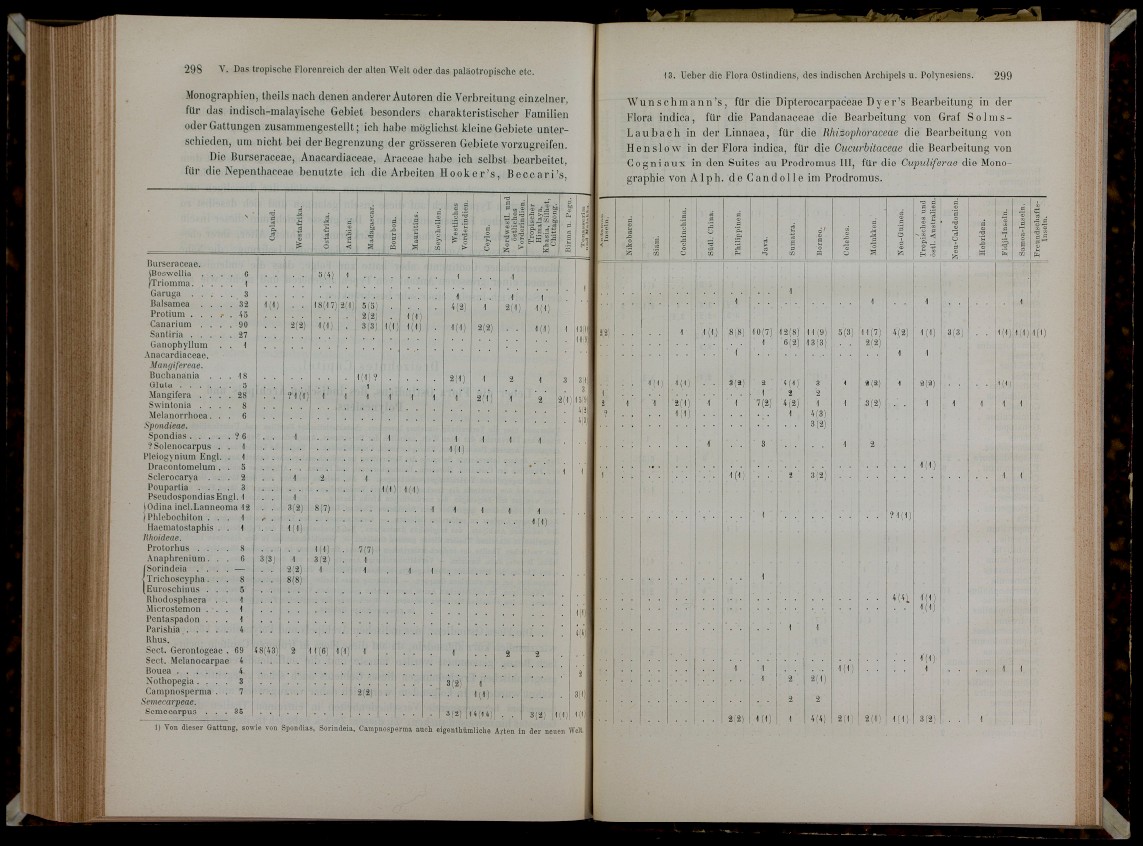 298 V. Das tropische Florenreich der alten Welt oder das paläotropische etc.
Monographien, theils nach denen anderer Autoren die Verbreitung einzelner,
für das indisch-malayische Gebiet besonders charakteristischer Familien
oder Gattungen zusammengestellt; ich habe möglichst kleine Gebiete unter-
schieden, um nicht bei der Begrenzung der grösseren Gebiete vorzugreifen.
Die Burseraceae, Anacardiaceae, Araceae habe ich selbst bearbeitet,
für die Nepenthaceae benutzte ich die Arbeiten Hooker's, Beccari's,
Capland.
Westafrika.
Ostafrika.
Arabien.
Madagascar.
Bourbon.
Mauritius.
Seychellen.
Westliches Vorderindien.
Ceylon.
Nordwestl. und östliches Vorderindien.
Tropischer Himalaya, Khasia, Silhet, Chittagong.
Birma u. Pegu.
Burseraceae.
Boswellia . . . . 6 5(4) 1 1 1
Triomma . . . . 1
Garuga . . . . 3 1 1 1
Balsamea . . . . 32 1(1) 18(17) 2(1) 5(5) 4(2) 1 2(1) 1(1)
Protium . . . . 45 2(2) 1(1)
Canarium . . . . 90 2(2) 1(1) 3(3) 1(1) 1(1) 1(1) 2(2) 1(1) 1
Santiria . . . . 27
Ganophyllum . . 1
Anacardiaceae.
Mangifereae.
Buchanania . . . 18 1(1)? 2(1) 1 2 1 3
Gluta . . . . . 5 1
Mangifera . . . . 28 ?1(1) 1 1 1 1 1 1 1 2(1) 1 2 2(1)
Swintonia . . . . 8
Melanorrhoea . . . 6
Spondieae.
Spondias . . . . . ? 6 1 1 1 1 1 1
? Solenocarpus . . 1 1(1)
Pleiogynium Engl. . 1
Dracontomelum . . 5
Sclerocarya . . . 2 1 2 1
Poupartia . . . . 3 1(1) 1(1)
Pseudospondias Engl. 1 1
Odina incl. Lanneoma 12 3(2) 8(7) 1 1 1 1 1
Phlebochiton . . . 1 1(1)
Haematostaphis . . 1 1(1)
Rhoideae.
Protorhus . . . . 8 1(1) 7(7)
Anaphrenium . . . 6 3(3) 1 3(2) 1
Sorindeia . . . . — 2(2) 1 1 1 1
Trichoscypha . . . 8 8(8)
Euroschinus . . . 5
Rhodosphaera . . 1
Microstemon . . . 1
Pentaspadon . . . 1
Parishia . . . . . 4
Rhus.
Sect. Gerontogeae . 69 48(43) 2 11(6) 1(1) 1 1 2 2
Sect. Melanocarpae 4
Bouea . . . . . 4
Nothopegia . . . . 3 3(2) 1
Campnosperma . . 7 2(2) 1(1)
Semecarpeae.
Semecarpus . . . 35 3(2) 14(14) 3(2) 1(1)
1) Von dieser Gattung, sowie von Spondias, Sorindeia, Campnosperma auch eigenthümliche Arten in der neuen Welt.
13. Ueber die Flora Ostindiens, des indischen Archipels u. Polynesiens. 299
Wunschmann's, für die Dipterocarpaceae Dyer's Bearbeitung in der
Flora indica, für die Pandanaceae die Bearbeitung von Graf Solms-
Laubach in der Linnaea, für die Rhizophoraceae die Bearbeitung von
Henslow in der Flora indica, für die Cucurbitaceae die Bearbeitung von
Cogniaux in den Suites au Prodromus III, für die Cupuliferae die Mono-
graphie von Alph. de Candolle im Prodromus.
Nikobaren.
Siam.
Cochinchina.
Südl. China.
Philippinen.
Java.
Sumatra.
Borneo.
Celebes.
Molukken.
Neu-Guinea.
Tropisches und östl. Australien.
Neu-Caledonien.
Hebriden.
Fidji-Inseln.
Samoa-Inseln.
Freundschafts-Inseln.
1
1 1 1 1
1 1(1) 8(8) 10(7) 12(8) 11(9) 5(3) 11(7) 4(2) 1(1) 3(3) 1(1) 1(1) 1(1)
1 6(2) 13(3) 2(2)
1 1 1
1(1) 1(1) 3(2) 2 4(1) 3 1 2(2) 1 2(2) 1(1)
1 2 2
1 1 2(1) 1 1 7(2) 4(2) 1 1 3(2) 1 1 1 1 1
1(1) 1 4(3)
3(2)
1 3 1 2
1(1)
1(1) 2 3(2) 1 1
1 ?1(1)
1
4(4) 1(1)
1(1)
1 1
1(1)
1 1 1(1) 1 1 1
1 2 2(1)
2 2
2(2) 1(1) 1 4(4) 2(1) 2(1) 1(1) 3(2) 1